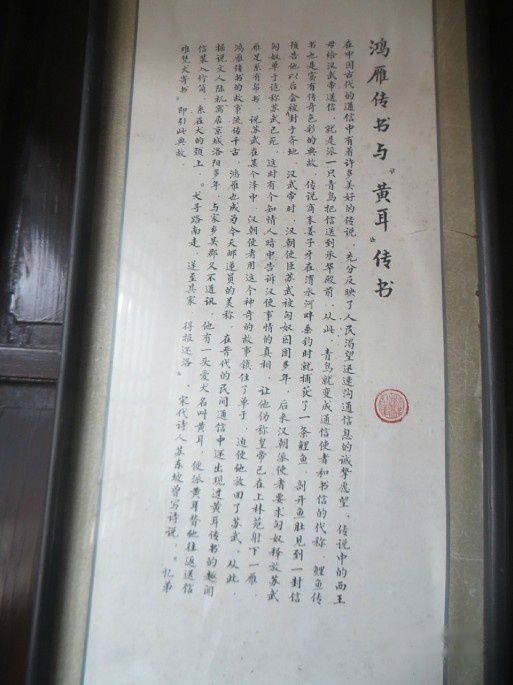 鸿雁传书与“黄耳”传书
在中国古代的通信中有着许多美好的传说，充分反映了人民渴望迅速沟通信息的诚挚愿望，传说中的西王
母给汉武帝送信，就是派一只青鸟把信送到承华殿前，从此，青鸟就变成通信使者和书信的代称，鲤鱼传
书也是富有传奇色彩的典故，传说商末姜子牙在渭水河畔垂钓时就捕获了一条鲤鱼，剖开鱼肚见到一封信
预告他以后会被封于齐地，汉武帝时，汉朝使臣苏武被匈奴囚困多年，后来汉朝派使者要求匈奴释放苏武
匈奴单于诡称苏武已死，这时有个知情人暗中告诉汉使事情的真相，让他伪称皇帝已在上林苑射下一雁，
雁足系有帛书，说苏武在某个泽中，汉朝使者用这个神奇的故事镇住了单于，迫使他放回了苏武，从此，
鸿雁传书的故事流传千古，鸿雁也成为今天邮递员的美称，在晋代的民间通信中还出现过黄耳传书的趣闻
据说文人陆机寓居京城洛阳多年，与家乡吴郡久不通讯，他有一头爱犬名叫黄耳，便派黄耳替他往返送信
信装入竹筒，系在犬的颈上，。犬寻路南走，遂至其家，得报还洛，宋代诗人苏东坡曾写诗说，。忆弟
难凭犬寄书。即引此典故，